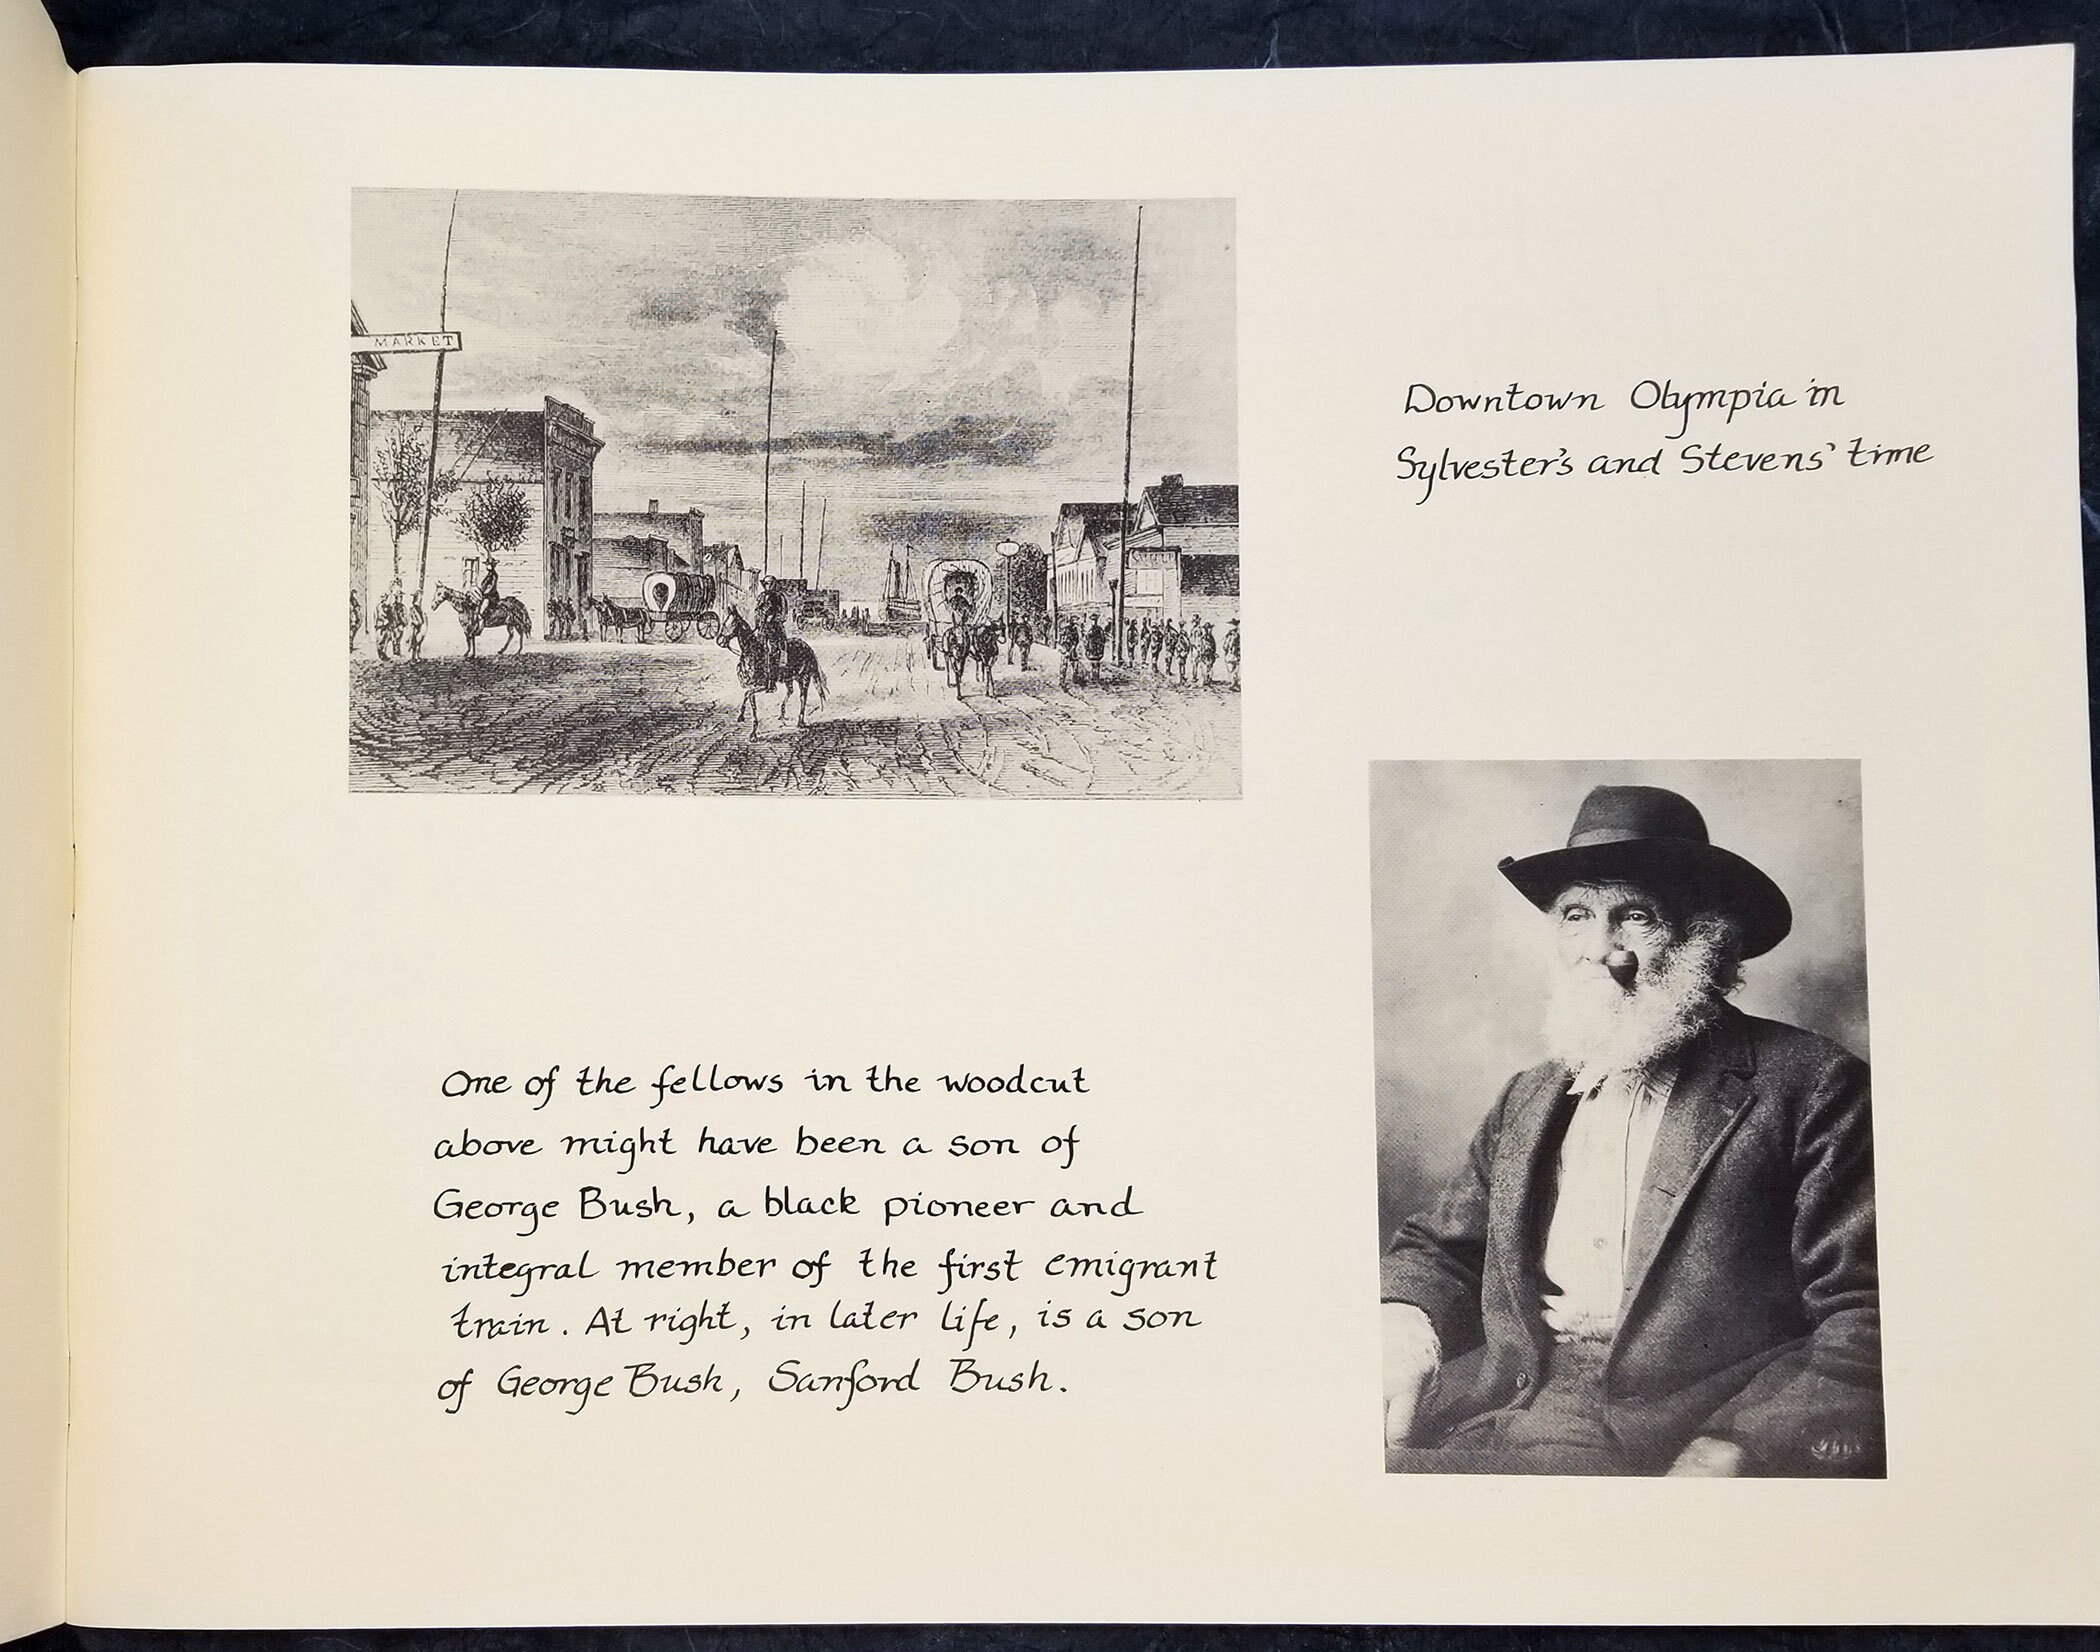 MARKET
Downtown Olympia in
Sylvester's and Stevens' time
One of the fellows in the woodcut
above might have been a son of
George Bush, a black pioneer and
integral member of the first emigrant
train. At right, in later life, is a son
of George Bush, Sanford Bush.